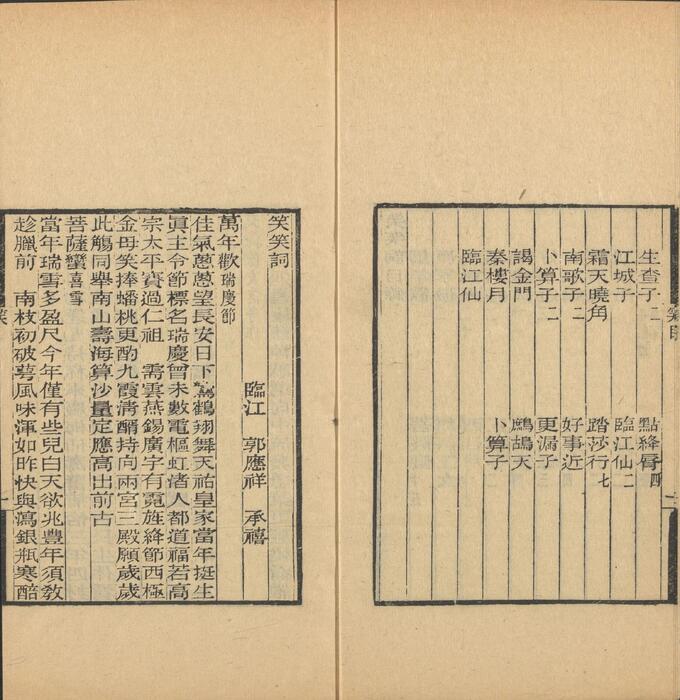 生查子二 點絳唇四
江城子 臨江仙二
霜天曉角 踏莎行七
南歌子二 好事近
卜算子二 更漏子三
謁金門 鷓鴣天
秦樓月 卜算子
臨江仙
笑目
笑笑詞
臨江 郭應祥 承禧
萬年歡瑞慶節
佳氣蔥蔥望長安日下鸞鶴翔舞天祐皇家當年挺生
眞主令節標名瑞慶曾未數電樞虹渚人都道福若高
宗太平賽過仁祖 需雲燕錫廣宇有霓旌絳節西極
金母笑捧蟠桃更酌九霞淸醑持向兩宮三殿願歲歲
此觴同舉南山壽海算沙量定應高出前古
菩薩蠻喜雪
當年瑞雪多盈尺今年僅有些兒白天欲兆豐年須敎
趁臘前 南枝初破萼風味渾如昨快與瀉銀瓶寒醅
笑
一